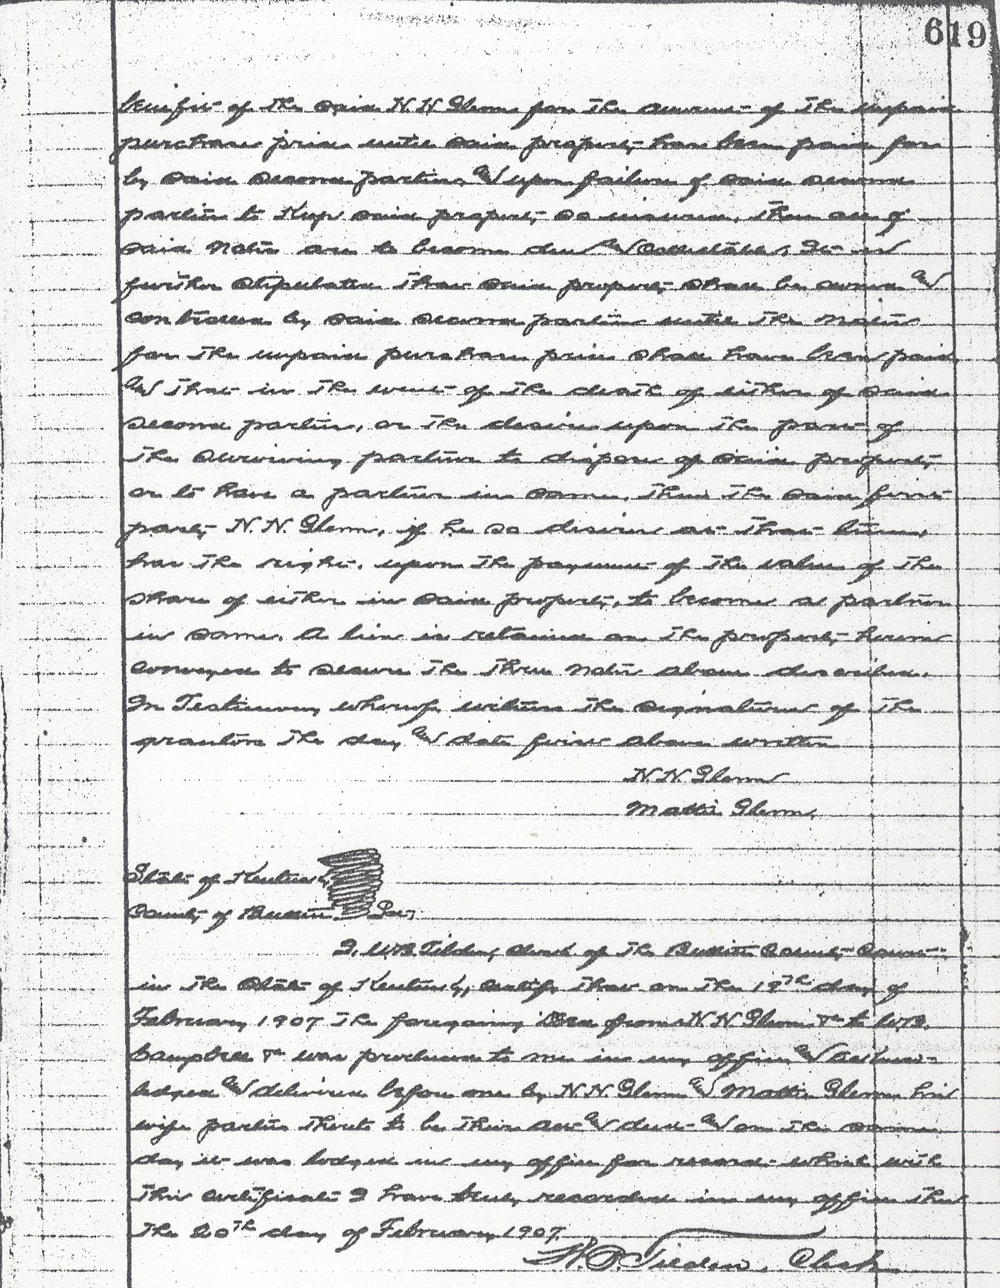 619
benefit of the said N.N. Glenn for the amount of the unpaid
purchase price until said property has been paid for
by said second parties, and upon failure of said second
parties to keep said property so insured, then all of
said notes are to become due and collectable. It is
further stipulated that said property shall be owned and
controlled by said second parties until the notes
for the unpaid purchase price shall have been paid
and that in the event of the death of either of said
second parties, or the desire upon the part of
the surviving partner to dispose of said property
or to have a partner in same, then the said first
party N.N. Glenn, if he so desires at that time,
has the right, upon the payment of the value of the
share of either in said property, to become a partner
in same. A lien is retained on the property herein
conveyed to secure the three notes above described.
In Testimony whereof, witness the signatures of the
grantors the day and date first above written
N.N. Glenn
Mattie Glenn
State of Kentucky
County of Bullitt Sct.
I, W.B. Tilden, clerk of the Bullitt County Court
in the State of Kentucky, certify that on the 19th day of
February 1907 the foregoing Deed from N.N. Glenn &c to W.B.
Campbell &c was produced to me in my office and acknow-
ledged and delivered before me by N.N. Glenn and Mattie Glenn his
wife parties thereto to be their act and deed and on the same
day it was lodged in my office for record which with
this certificate I have truly recorded in my office this
the 20th day of February, 1907.
W.B. Tilden, Clerk